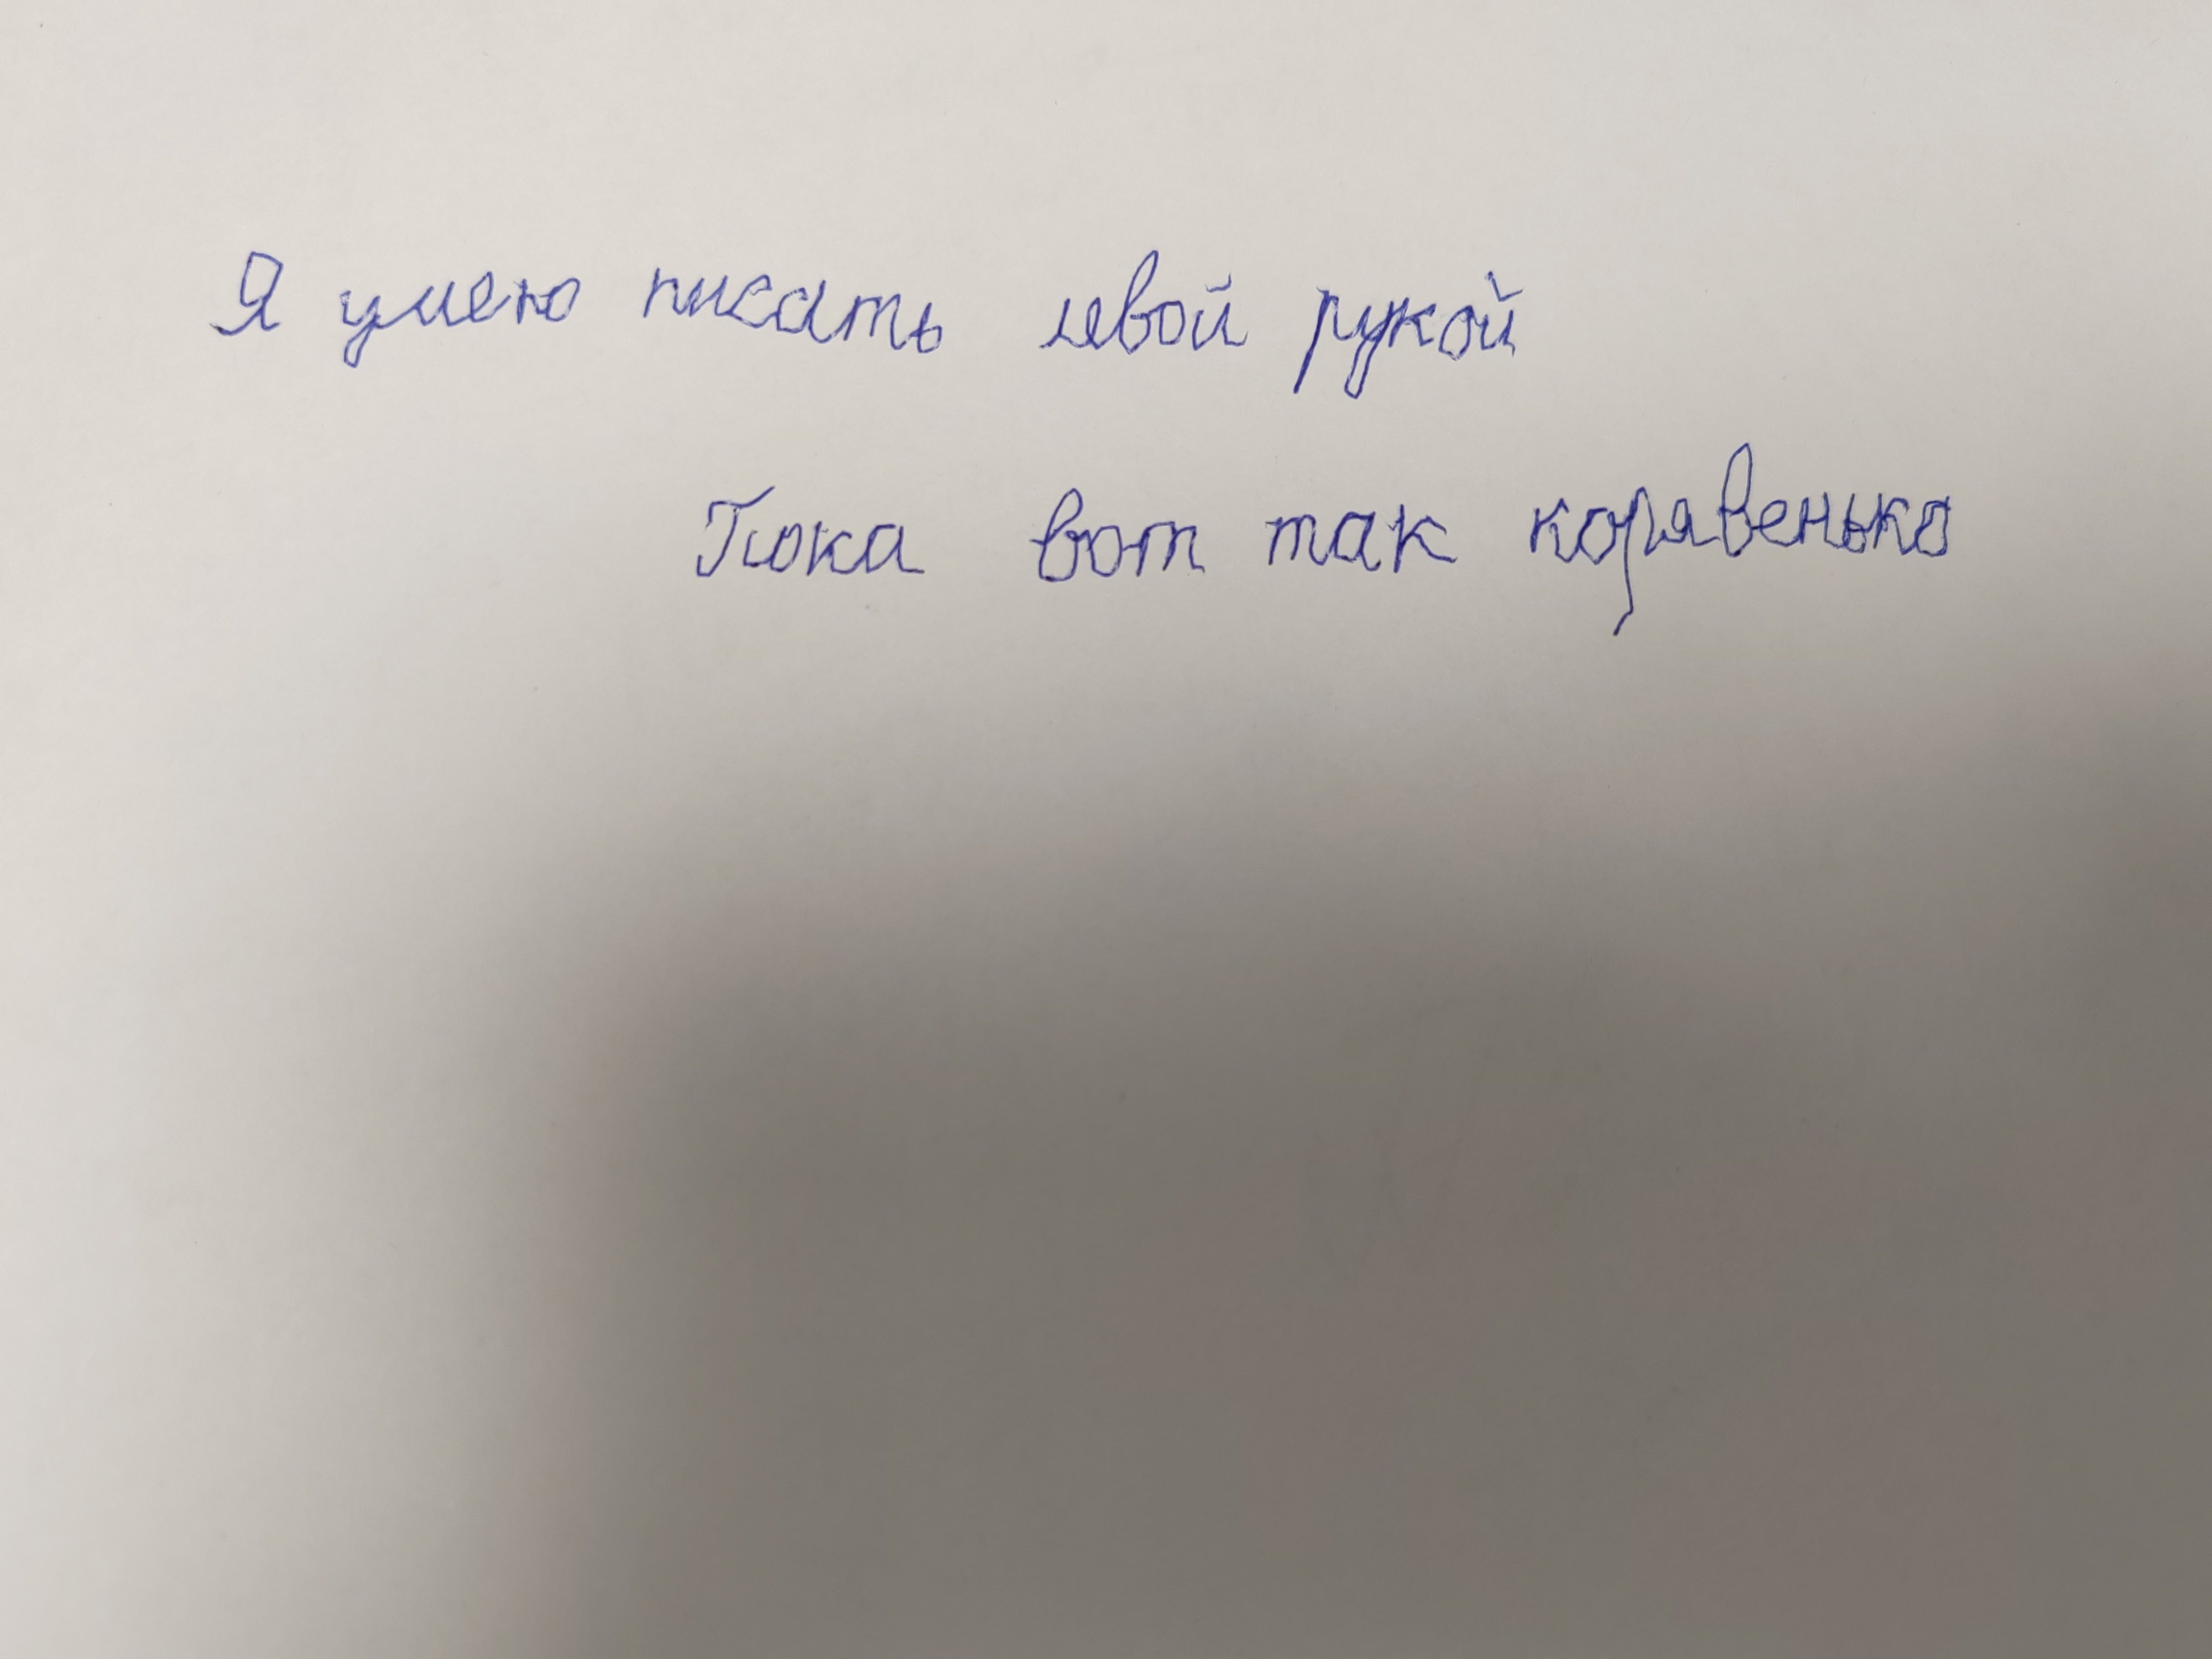 Я умею писать левой рукой
Пока вот так корявенько